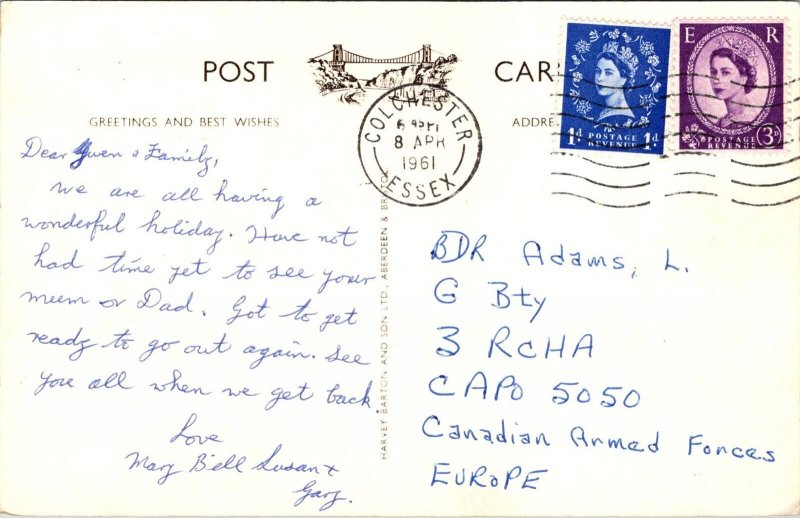 POST CARD
GREETINGS AND BEST WISHES
ADDRE
COLCHESTER
8 APR
1961
ESSEX
1d POSTAGE 1d
REVENUE
E R
POSTAGE 3D
REVENUE
HARVEY BARTON AND SON LTD., ABERDEEN & BRISTOL
Dear Gwen & Family,
We are all having a
wonderful holiday. Have not
had time yet to see your
mum or Dad. Got to get
ready to go out again. See
you all when we get back.
Love
Mary Bill Susan &
Gary.
BDR Adams, L.
G Bty
3 RCHA
CAPO 5050
Canadian Armed Forces
EUROPE